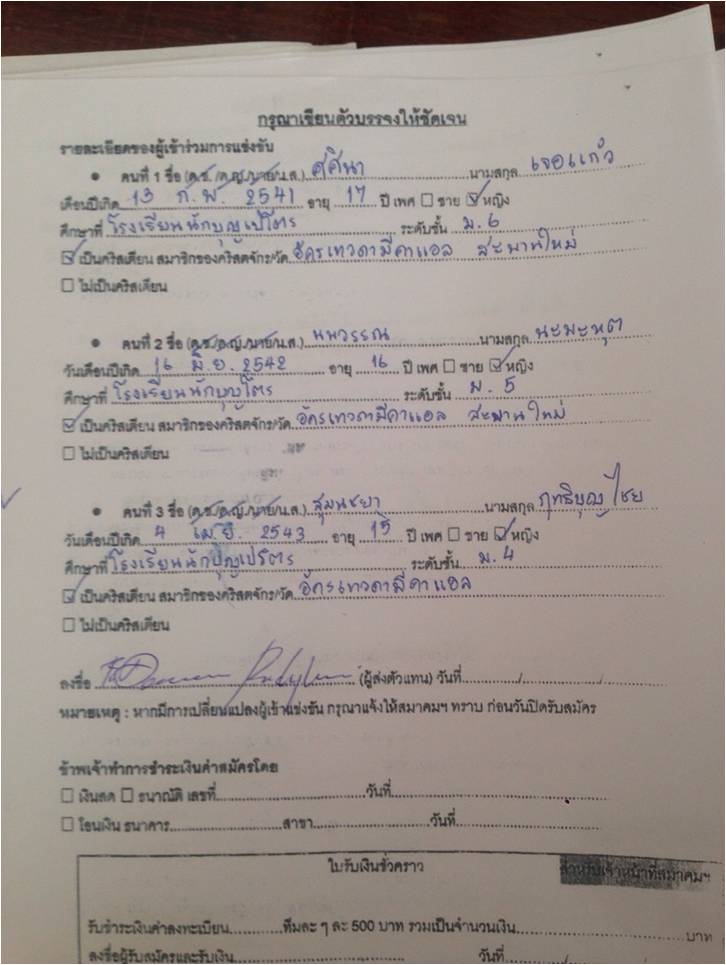 กรุณาเขียนตัวบรรจงให้ชัดเจน
รายละเอียดของผู้เข้าร่วมการแข่งขัน
• คนที่ 1 ชื่อ (ด.ช./ด.ญ./นาย/น.ส.) ศศินา นามสกุล เจอแก้ว
เดือนปีเกิด 13 ก.พ. 2541 อายุ 17 ปี เพศ ☐ ชาย ☑ หญิง
ศึกษาที่ โรงเรียนนักบุญเปโตร ระดับชั้น ม.6
☑ เป็นคริสเตียน สมาชิกของคริสตจักร/วัด อัครเทวดามีคาแอล สะพานใหม่
☐ ไม่เป็นคริสเตียน
• คนที่ 2 ชื่อ (ด.ช./ด.ญ./นาย/น.ส.) นพวรรณ นามสกุล นะมะหุต
วันเดือนปีเกิด 16 มิ.ย. 2542 อายุ 16 ปี เพศ ☐ ชาย ☑ หญิง
ศึกษาที่ โรงเรียนนักบุญเปโตร ระดับชั้น ม.5
☑ เป็นคริสเตียน สมาชิกของคริสตจักร/วัด อัครเทวดามีคาแอล สะพานใหม่
☐ ไม่เป็นคริสเตียน
• คนที่ 3 ชื่อ (ด.ช./ด.ญ./นาย/น.ส.) สุมนชยา นามสกุล ฤทธิบุญไชย
วันเดือนปีเกิด 4 เม.ย. 2543 อายุ 15 ปี เพศ ☐ ชาย ☑ หญิง
ศึกษาที่ โรงเรียนนักบุญเปโตร ระดับชั้น ม.4
☑ เป็นคริสเตียน สมาชิกของคริสตจักร/วัด อัครเทวดามีคาแอล
☐ ไม่เป็นคริสเตียน
ลงชื่อ (ผู้ส่งตัวแทน) วันที่ / /
หมายเหตุ : หากมีการเปลี่ยนแปลงผู้เข้าแข่งขัน กรุณาแจ้งให้สมาคมฯ ทราบ ก่อนวันปิดรับสมัคร
ข้าพเจ้าทำการชำระเงินค่าสมัครโดย
☐ เงินสด ☐ ธนาณัติ เลขที่ วันที่
☐ โอนเงิน ธนาคาร สาขา วันที่
ใบรับเงินชั่วคราว สำหรับเจ้าหน้าที่สมาคมฯ
รับชำระเงินค่าลงทะเบียน ทีมละ ๆ ละ 500 บาท รวมเป็นจำนวนเงิน บาท
ลงชื่อผู้รับสมัครและรับเงิน วันที่ / /